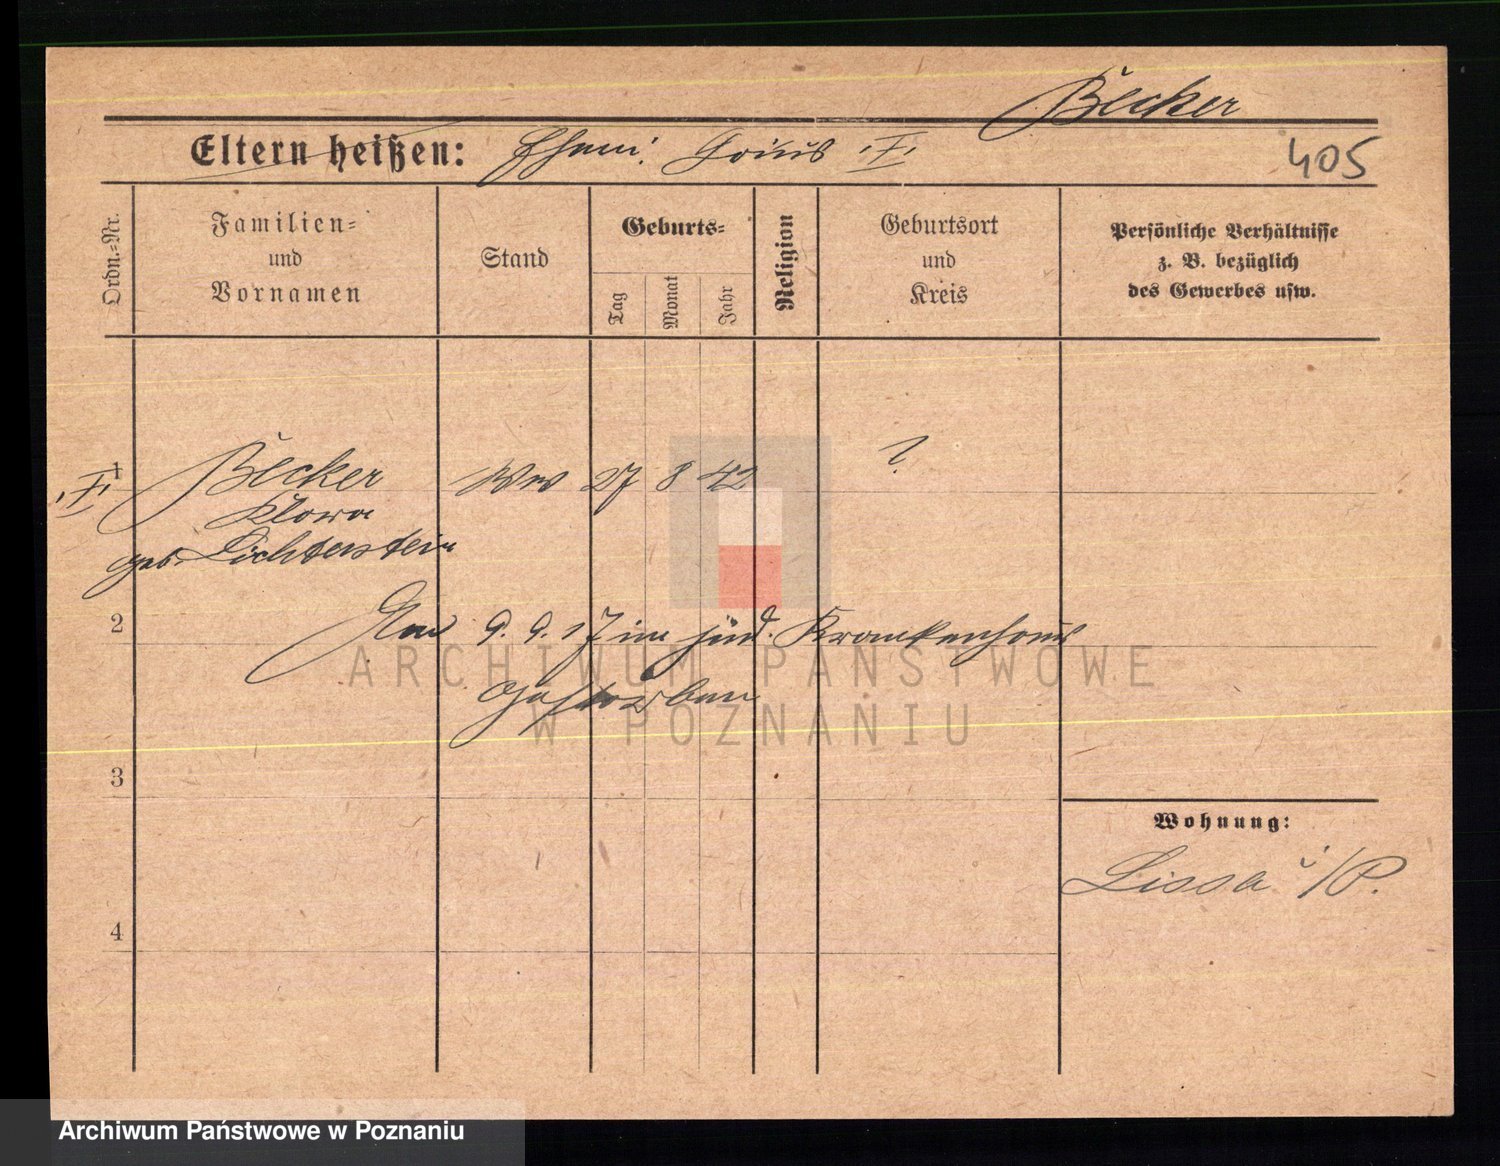 Becker
Eltern heißen: Ehem. Louis
405
Ordn.-Nr.
Familien-
und
Vornamen
Stand
Geburts-
Tag
Monat
Jahr
Religion
Geburtsort
und
Kreis
Persönliche Verhältnisse
z. B. bezüglich
des Gewerbes usw.
1
Becker Ww 27 8 42 ?
Klara
geb. Lichtenstein
2
Am 9. 9. 17 im jüd. Krankenhaus
gestorben
ARCHIWUM PAŃSTWOWE
W POZNANIU
3
Wohnung:
Lissa i/P.
4
Archiwum Państwowe w Poznaniu